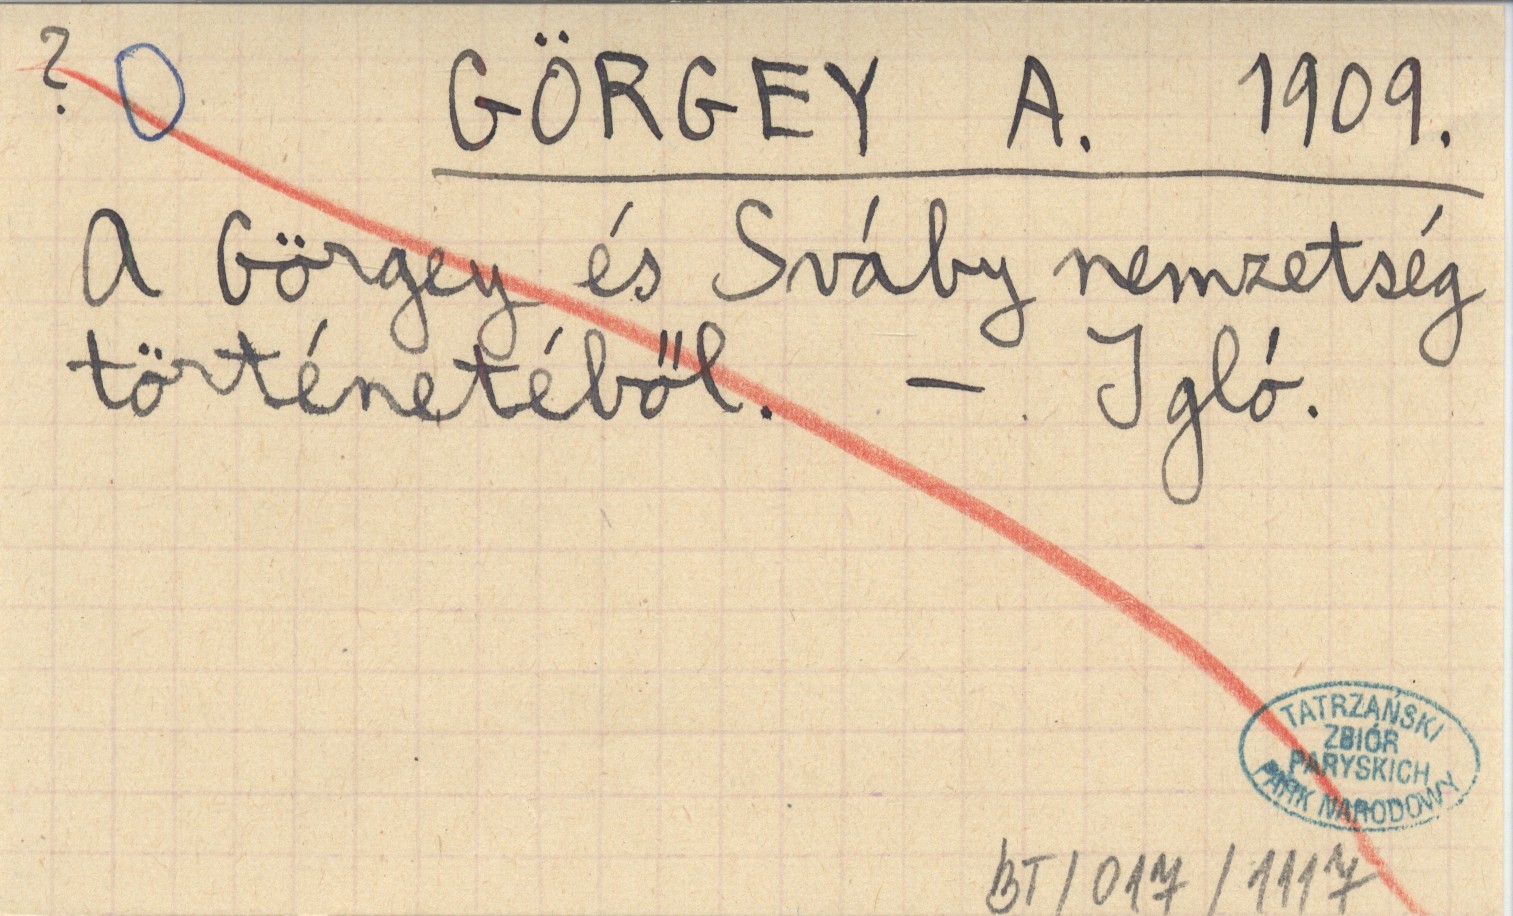 ? O GÖRGEY A. 1909.
A Görgey és Sváby nemzetség
történetéből. — Igló.
TATRZAŃSKI
ZBIÓR
PARYSKICH
PARK NARODOWY
BT/017/1117